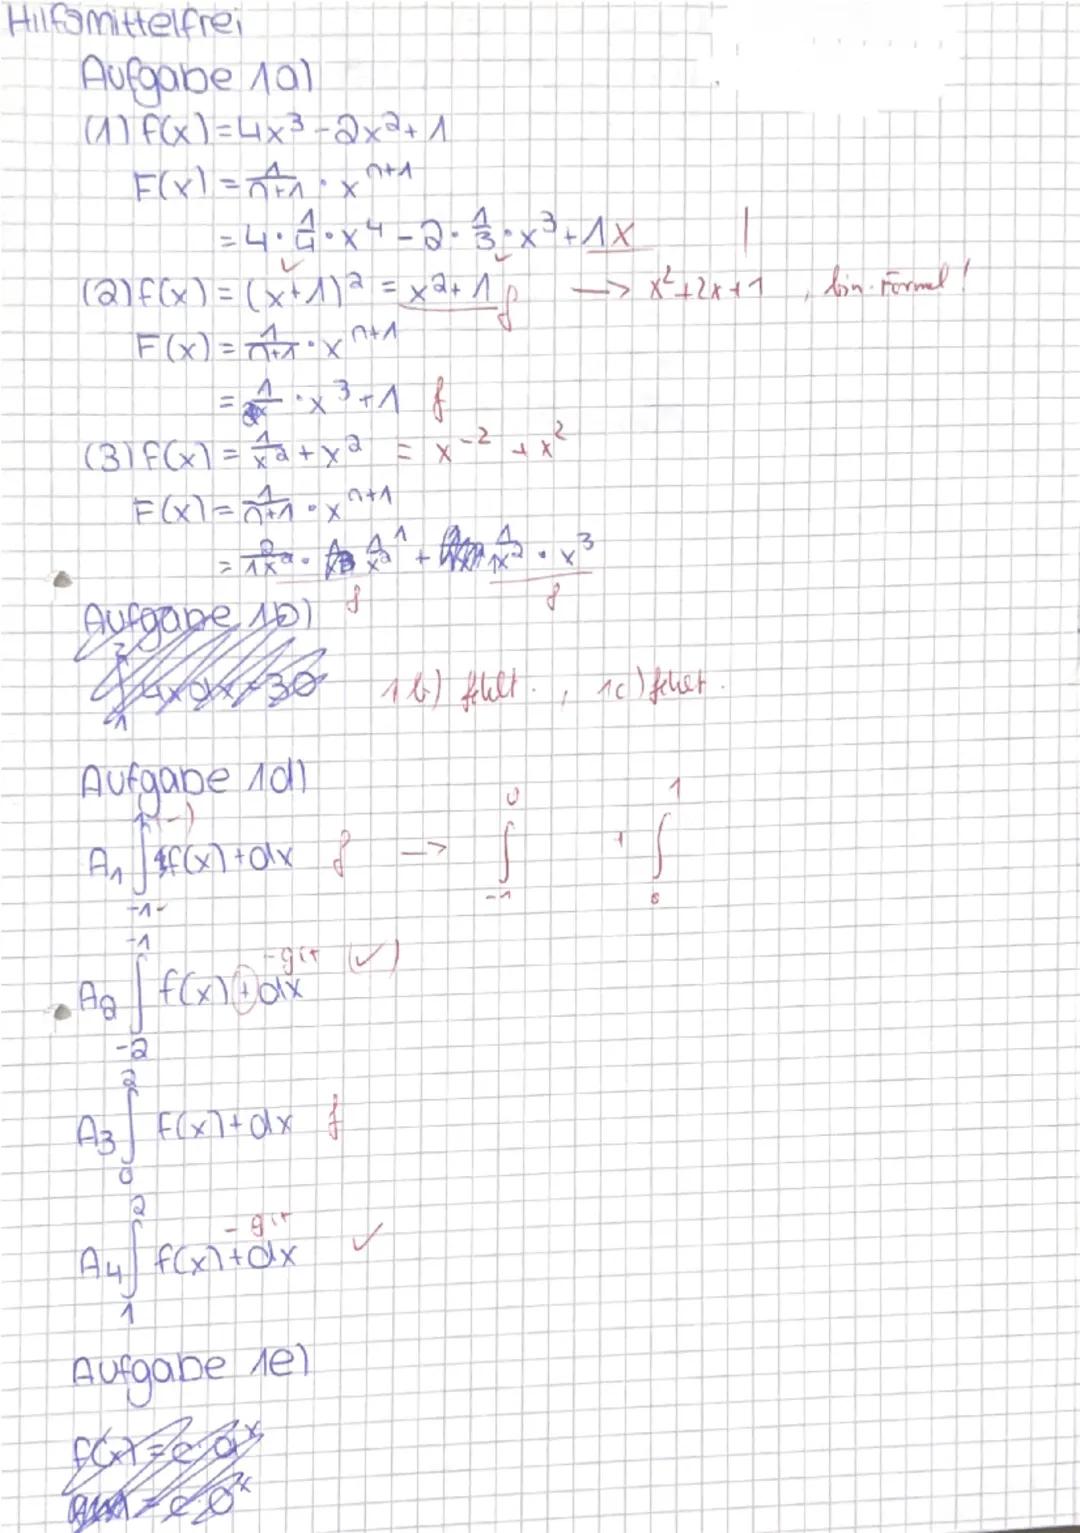 Hilfsmittelfrei
Aufgabe 1a)
(1) f(x)=4x³-2x²+1
F(x) = 1/(n+1) · x^(n+1)
= 4 · 1/4 · x⁴ - 2 · 1/3 · x³ + 1x |
✓ ✓
(2) f(x) = (x+1)² = x²+1 f → x²+2x+1, bin. Formel!
F(x) = 1/(n+1) · x^(n+1)
= 1/ · x³+1 f
(3) f(x) = 1/x² + x² = x⁻² + x²
F(x) = 1/(n+1) · x^(n+1)
= 2/1x² · 1/x² ¹ + 1/1x² · x³
f f
Aufgabe 1b)
∫ 4x dx = 30 1b) fehlt., 1c) fehlt.
Aufgabe 1d)
A₁ ∫ f(x)+dx f → ∫ + ∫
-1 -1 0
A₂ ∫ f(x)+dx (✓)
-2
A₃ ∫ f(x)+dx f
0
A₄ ∫ f(x)+dx ✓
1
Aufgabe 1e)
f(x)=c·a^x